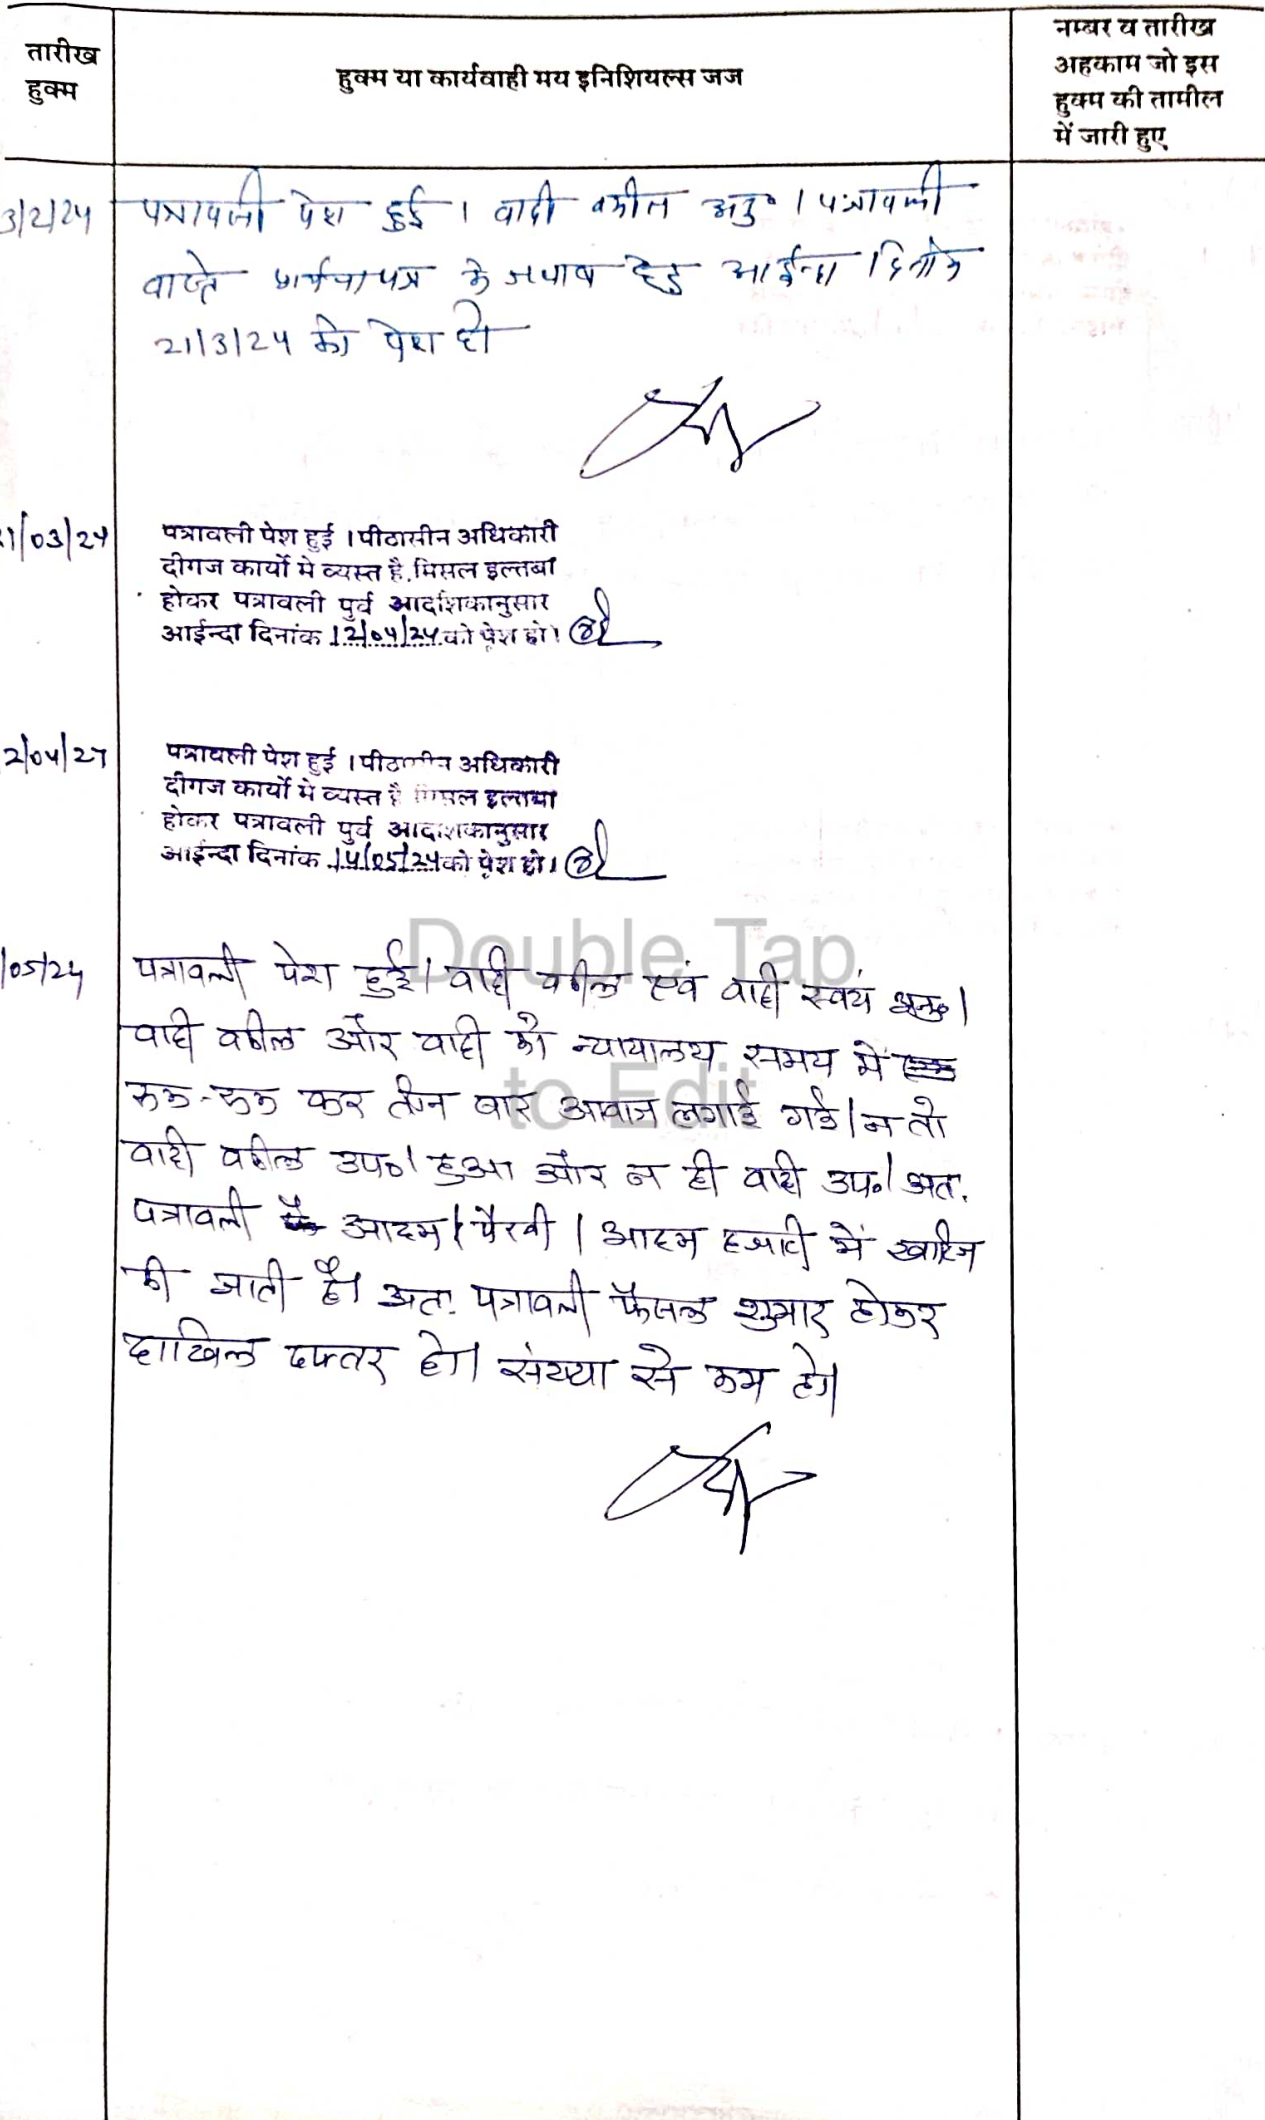 तारीख
हुक्म
हुक्म या कार्यवाही मय इनिशियल्स जज
नम्बर व तारीख
अहकाम जो इस
हुक्म की तामील
में जारी हुए
3/2/24
पत्रावली पेश हुई । वादी वकील अनु० । पत्रावली
वास्ते प्रार्थनापत्र के जवाब हेतु आईन्दा दिनांक
21/3/24 को पेश हो
1/03/24
पत्रावली पेश हुई । पीठासीन अधिकारी
दीगज कार्यो मे व्यस्त है. मिसल इल्तबा
होकर पत्रावली पुर्व आदशिकानुसार
आईन्दा दिनांक 12/04/24 को पेश हो।
2/04/24
पत्रावली पेश हुई । पीठासीन अधिकारी
दीगज कार्यो मे व्यस्त है मिसल इल्तबा
होकर पत्रावली पुर्व आदशिकानुसार
आईन्दा दिनांक 14/05/24 को पेश हो।
Double Tap
to Edit
/05/24
पत्रावली पेश हुई। वादी वकील एवं वादी स्वयं अनु०।
वादी वकील और वादी को न्यायालय समय में
रूक-रूक कर तीन बार आवाज लगाई गई। न तो
वादी वकील उप०। हुआ और न ही वादी उप०। अत.
पत्रावली आदम पैरवी / आदम हजारी में खारिज
की जाती है। अत. पत्रावली फैसल शुमार होकर
दाखिल दफ्तर हो। संख्या से कम हो।